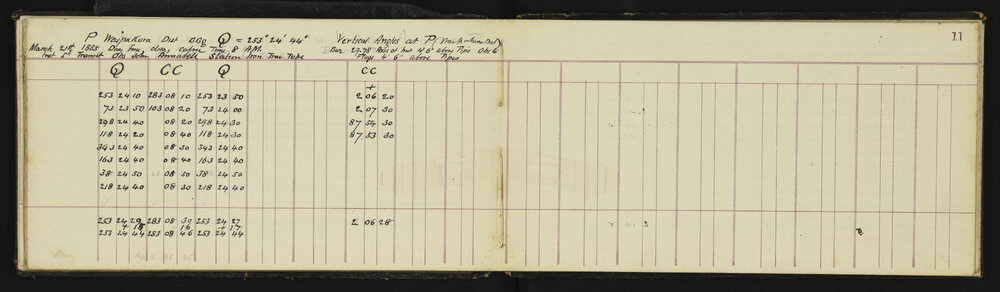 11
P Waipakura Dist BBg Q = 253° 24' 44"
Vertical Angles at P, Waipakura Dist
March 21st 1885 Day fine, clear, calm Time 8 A.M.
Bar 29.75 Axis of Inst 4' 6" above Pipe Obs 6
Inst 5" Transit Obs John Annabell Station Iron Trav Tube
Flags 4' 6" above Pipes
Q CC Q
CC
+
253 24 10 283 08 10 253 23 50
2 06 20
73 23 50 103 08 20 73 24 00
2 07 30
298 24 40 08 20 298 24 30
87 54 30
118 24 20 08 40 118 24 30
87 53 30
343 24 40 08 30 343 24 40
163 24 40 08 40 163 24 40
38 24 50 08 50 38 24 50
218 24 40 08 30 218 24 40
253 24 29 283 08 30 253 24 27
2 06 28
+ 15 16 + 17
253 24 44 283 08 46 253 24 44